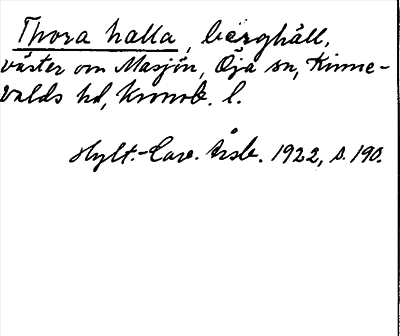 Thora halla, berghäll,
väster om Masjön, Öja sn, Kinne-
valds hd, Kronob. l.
Hylt.-Cav. Årsb. 1922, s. 190.